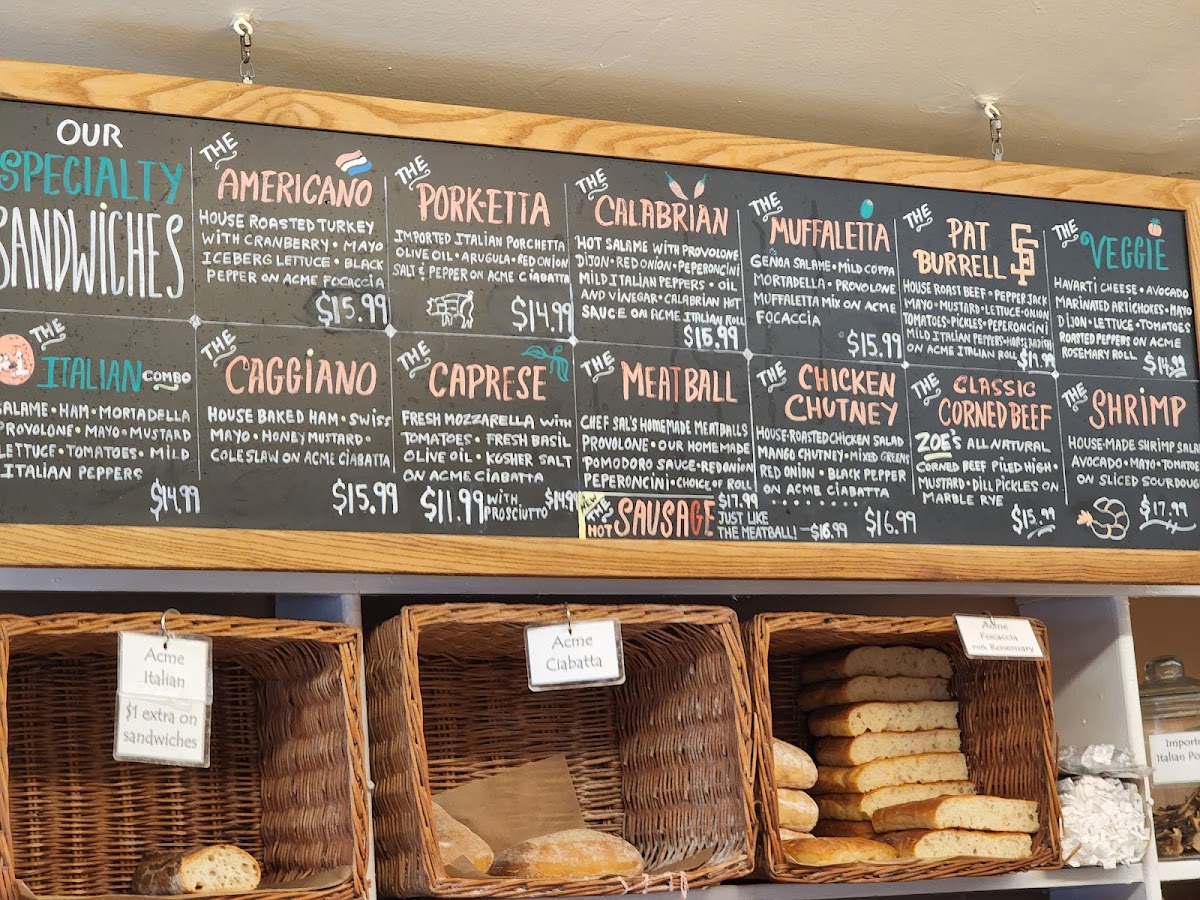 OUR
SPECIALTY
SANDWICHES
THE
AMERICANO
HOUSE ROASTED TURKEY
WITH CRANBERRY • MAYO
ICEBERG LETTUCE • BLACK
PEPPER ON ACME FOCACCIA
$15.99
THE
PORK-ETTA
IMPORTED ITALIAN PORCHETTA
OLIVE OIL • ARUGULA • RED ONION
SALT & PEPPER ON ACME CIABATTA
$14.99
THE
CALABRIAN
HOT SALAME WITH PROVOLONE
DIJON • RED ONION • PEPERONCINI
MILD ITALIAN PEPPERS • OIL
AND VINEGAR • CALABRIAN HOT
SAUCE ON ACME ITALIAN ROLL
$15.99
THE
MUFFALETTA
GENOA SALAME • MILD COPPA
MORTADELLA • PROVOLONE
MUFFALETTA MIX ON ACME
FOCACCIA
$15.99
THE
PAT
BURRELL SF
HOUSE ROAST BEEF • PEPPER JACK
MAYO • MUSTARD • LETTUCE • ONION
TOMATOES • PICKLES • PEPERONCINI
MILD ITALIAN PEPPERS • HORSERADISH
ON ACME ITALIAN ROLL
THE
VEGGIE
HAVARTI CHEESE • AVOCADO
MARINATED ARTICHOKES • MAYO
DIJON • LETTUCE • TOMATOES
ROASTED PEPPERS ON ACME
ROSEMARY ROLL $14.99
THE
ITALIAN COMBO
SALAME • HAM • MORTADELLA
PROVOLONE • MAYO • MUSTARD
LETTUCE • TOMATOES • MILD
ITALIAN PEPPERS
$14.99
THE
CAGGIANO
HOUSE BAKED HAM • SWISS
MAYO • HONEY MUSTARD •
COLESLAW ON ACME CIABATTA
$15.99
THE
CAPRESE
FRESH MOZZARELLA WITH
TOMATOES • FRESH BASIL
OLIVE OIL • KOSHER SALT
ON ACME CIABATTA
$11.99 WITH PROSCIUTTO $14.99
THE
MEATBALL
CHEF SAL'S HOMEMADE MEATBALLS
PROVOLONE • OUR HOMEMADE
POMODORO SAUCE • RED ONION
PEPERONCINI • CHOICE OF ROLL
$17.99
THE HOT SAUSAGE
JUST LIKE
THE MEATBALL! — $16.99
THE
CHICKEN
CHUTNEY
HOUSE-ROASTED CHICKEN SALAD
MANGO CHUTNEY • MIXED GREENS
RED ONION • BLACK PEPPER
ON ACME CIABATTA
$16.99
THE
CLASSIC
CORNED BEEF
ZOE'S ALL NATURAL
CORNED BEEF PILED HIGH •
MUSTARD • DILL PICKLES ON
MARBLE RYE
$15.99
THE
SHRIMP
HOUSE-MADE SHRIMP SALAD
AVOCADO • MAYO • TOMATO
ON SLICED SOURDOUGH
$17.99
Acme
Italian
$1 extra on
sandwiches
Acme
Ciabatta
Acme
Focaccia
with Rosemary
Imported
Italian